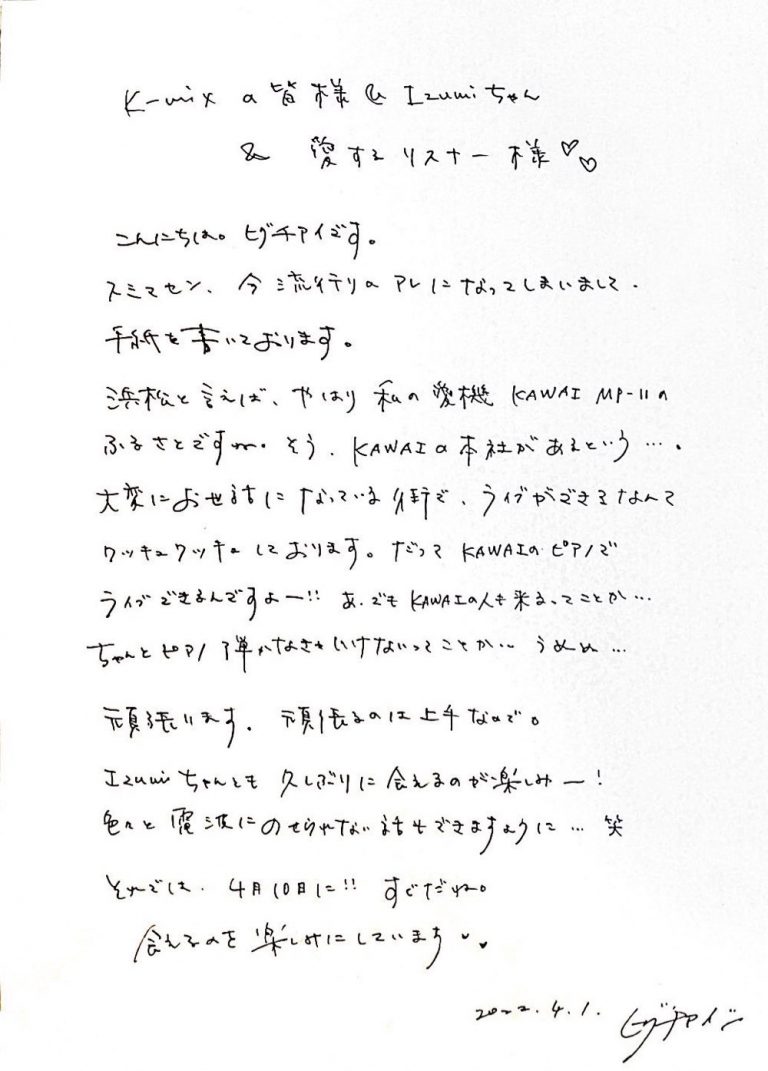 K-mixの皆様& Izumiちゃん
& 愛するリスナー様♡♡
こんにちは。ヒグチアイです。
スミマセン、今流行りのアレになってしまいまして、
手紙を書いております。
浜松と言えば、やはり私の愛機 KAWAI MP-11の
ふるさとですね。そう、KAWAIの本社があるという…。
大変にお世話になっている街で、ライブができるなんて
ワッキュワッキュしております。だって KAWAIのピアノで
ライブできるんですよー!! あ、でもKAWAIの人も来るってことか…
ちゃんとピアノ弾かなきゃいけないってことか… うぬぬ…
頑張ります。頑張るのは上手なので。
Izumiちゃんとも久しぶりに会えるのが楽しみー!
色々と電波にのせられない話もできますように… 笑
それでは、4月10日に!! すぐだね。
会えるのを楽しみにしています♥♥
2022.4.1. ヒグチアイ